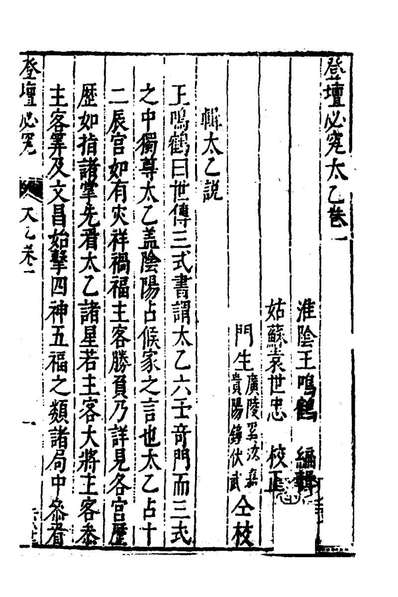 登壇必究太乙卷一
淮陰王鳴鶴 編輯
姑蘇袁世忠 校正
門生 廣陵
貴陽 伏武 仝校
輯太乙説
王鳴鶴曰世傳三式書謂太乙六壬竒門而三式
之中獨尊太乙盖陰陽占候家之言也太乙占十
二辰宫如有灾祥禍福主客勝負乃詳見各宫歷
歷如指諸掌先看太乙諸星若主客大將主客叅
主客筭及文昌始擊四神五福之類諸局中叅看
登壇必究 太乙卷一 一